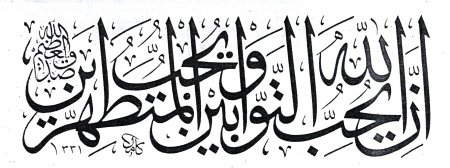 إِنَّ اللّٰهَ يُحِبُّ التَّوَّابِينَ وَيُحِبُّ الْمُتَطَهِّرِينَ
صدق الله العظيم
١٣٣١